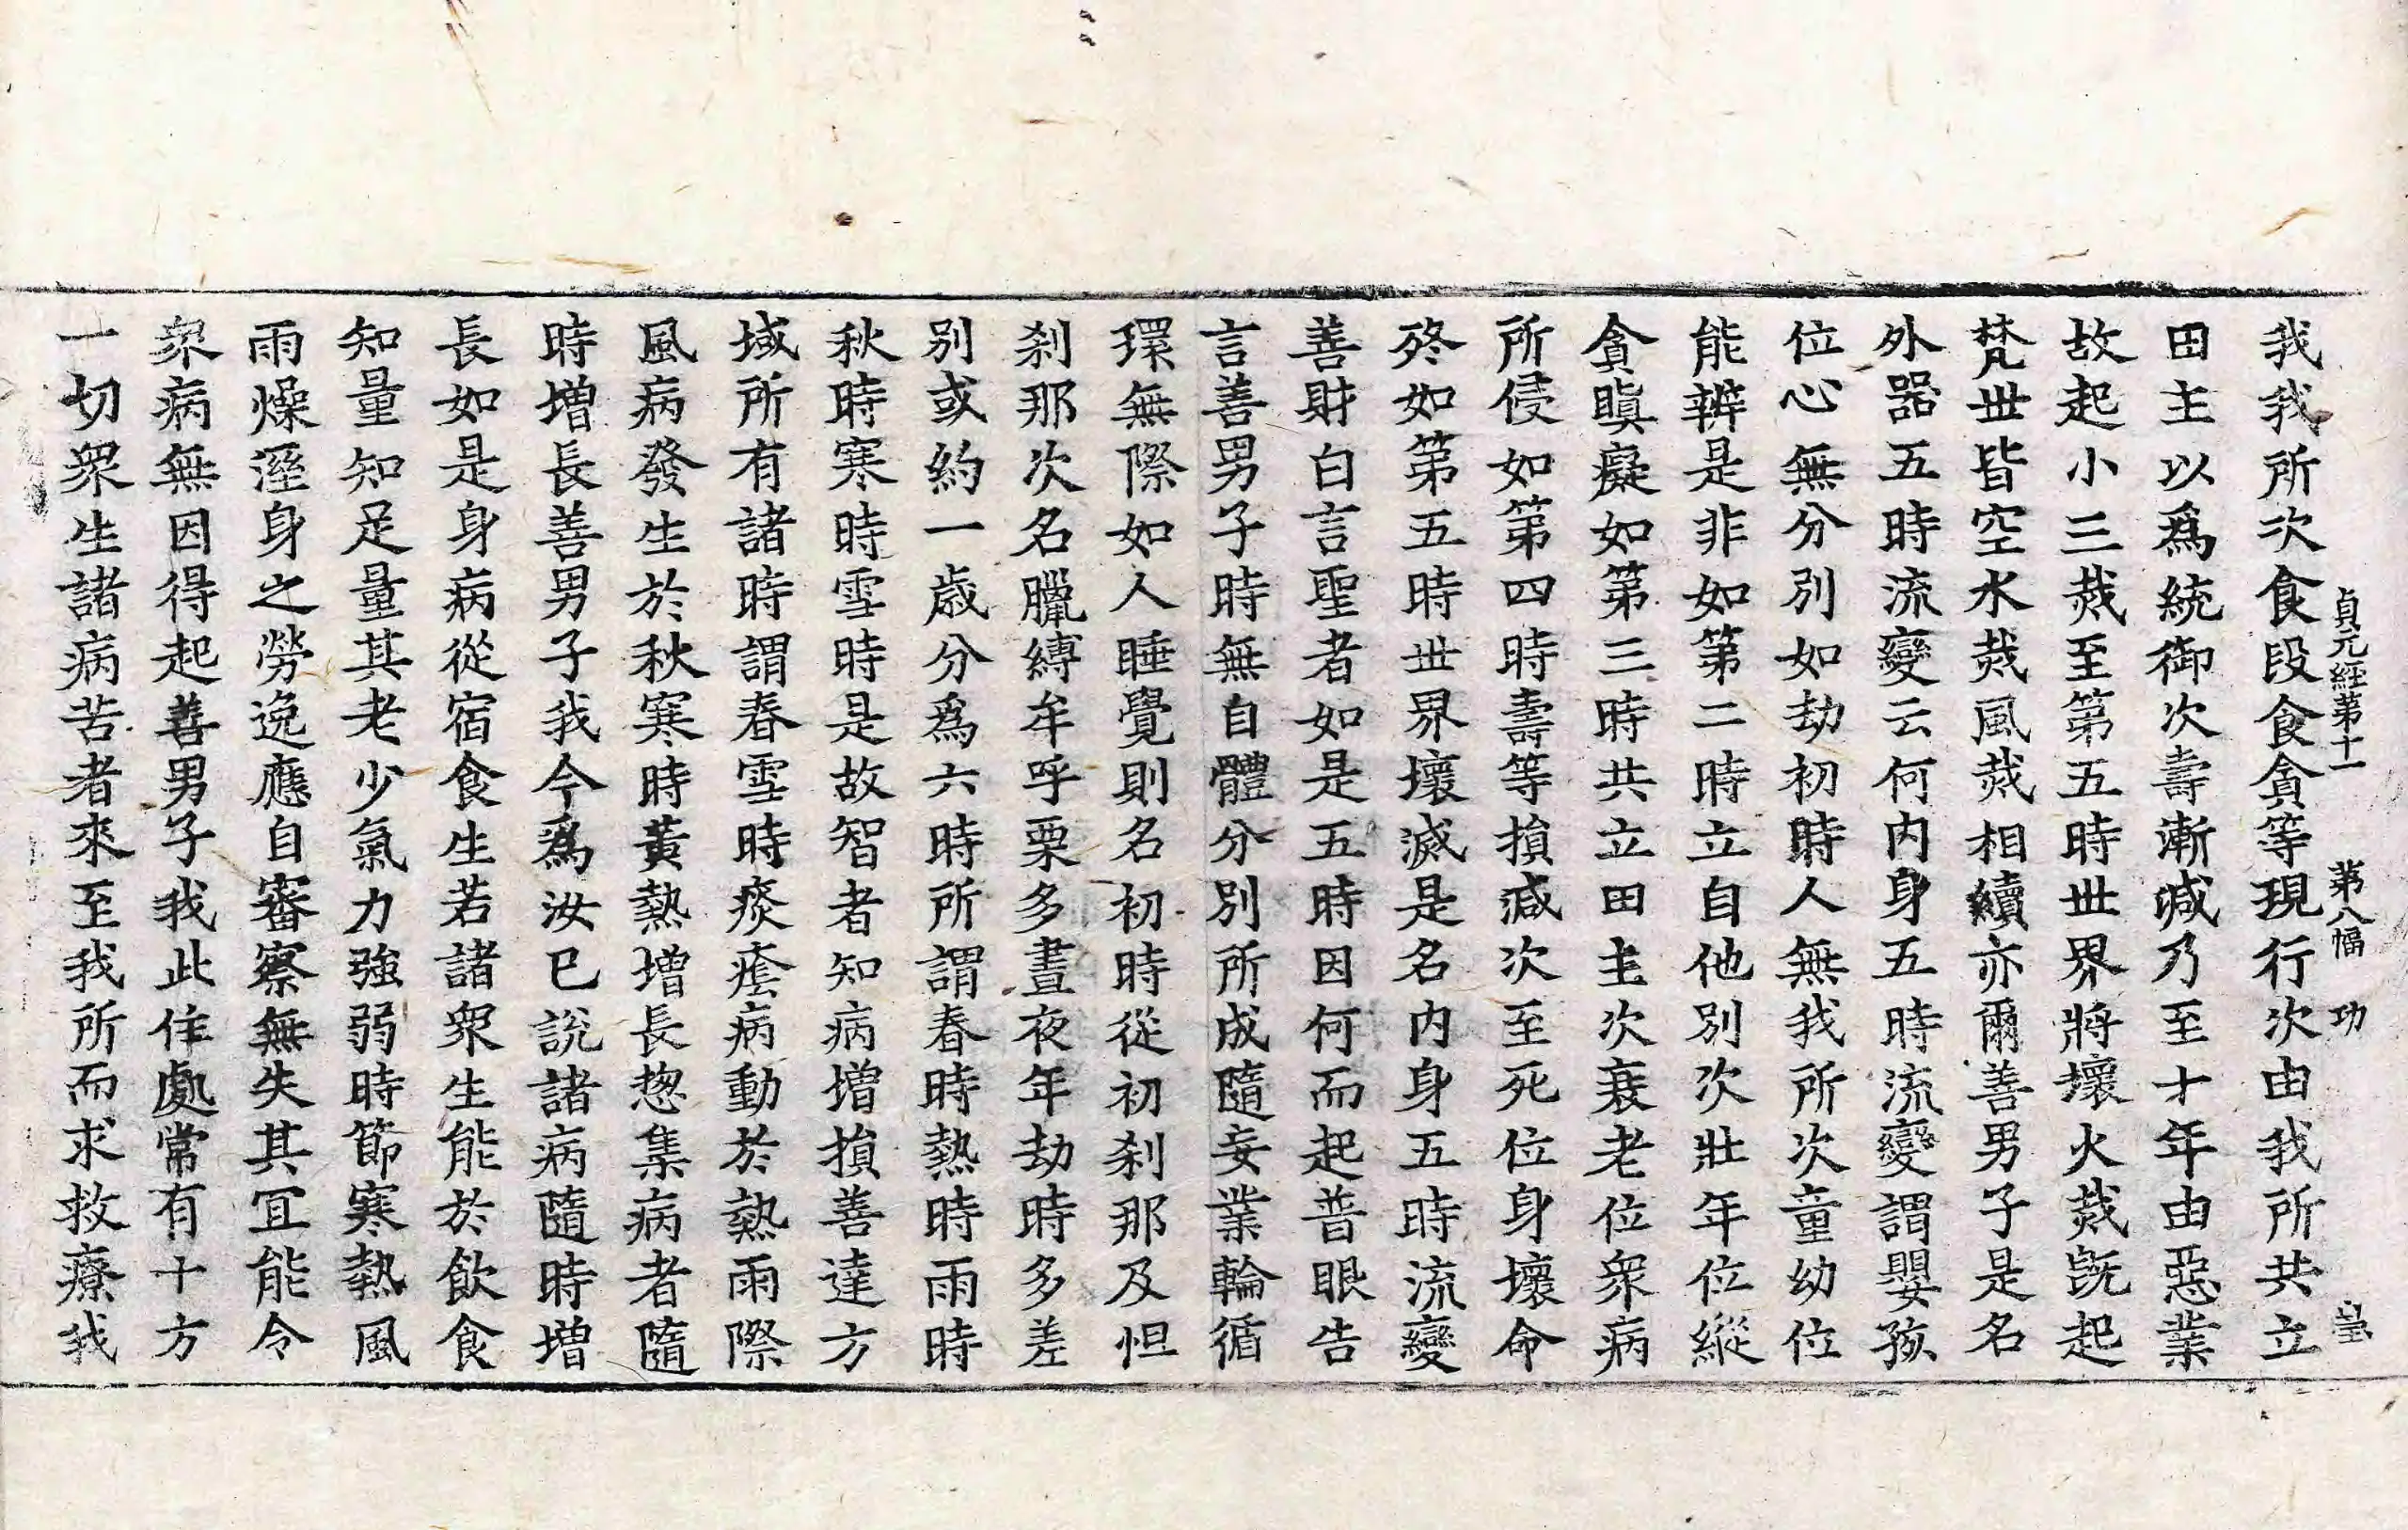 貞元經第十一 第八幅 功
我我所次食段食貪等現行次由我所共立
田主以爲統御次壽漸減乃至十年由惡業
故起小三烖至第五時世界將壞火烖旣起
梵世皆空水烖風烖相續亦爾善男子是名
外器五時流變云何内身五時流變謂嬰孩
位心無分別如劫初時人無我所次童幼位
能辨是非如第二時立自他別次壯年位縱
貪瞋癡如第三時共立田主次衰老位衆病
所侵如第四時壽等損減次至死位身壞命
終如第五時世界壞滅是名内身五時流變
善財白言聖者如是五時因何而起普眼告
言善男子時無自體分別所成隨妄業輪循
環無際如人睡覺則名初時從初刹那及怛
刹那次名臘縛牟呼栗多晝夜年劫時多差
別或約一歲分爲六時所謂春時熱時雨時
秋時寒時雪時是故智者知病增損善達方
域所有諸時謂春雪時痰癊病動於熱雨際
風病發生於秋寒時黃熱增長揔集病者隨
時增長善男子我今爲汝已說諸病隨時增
長如是身病從宿食生若諸衆生能於飲食
知量知足量其老少氣力強弱時節寒熱風
雨燥溼身之勞逸應自審察無失其冝能令
衆病無因得起善男子我此住處常有十方
一切衆生諸病苦者來至我所而求救療我